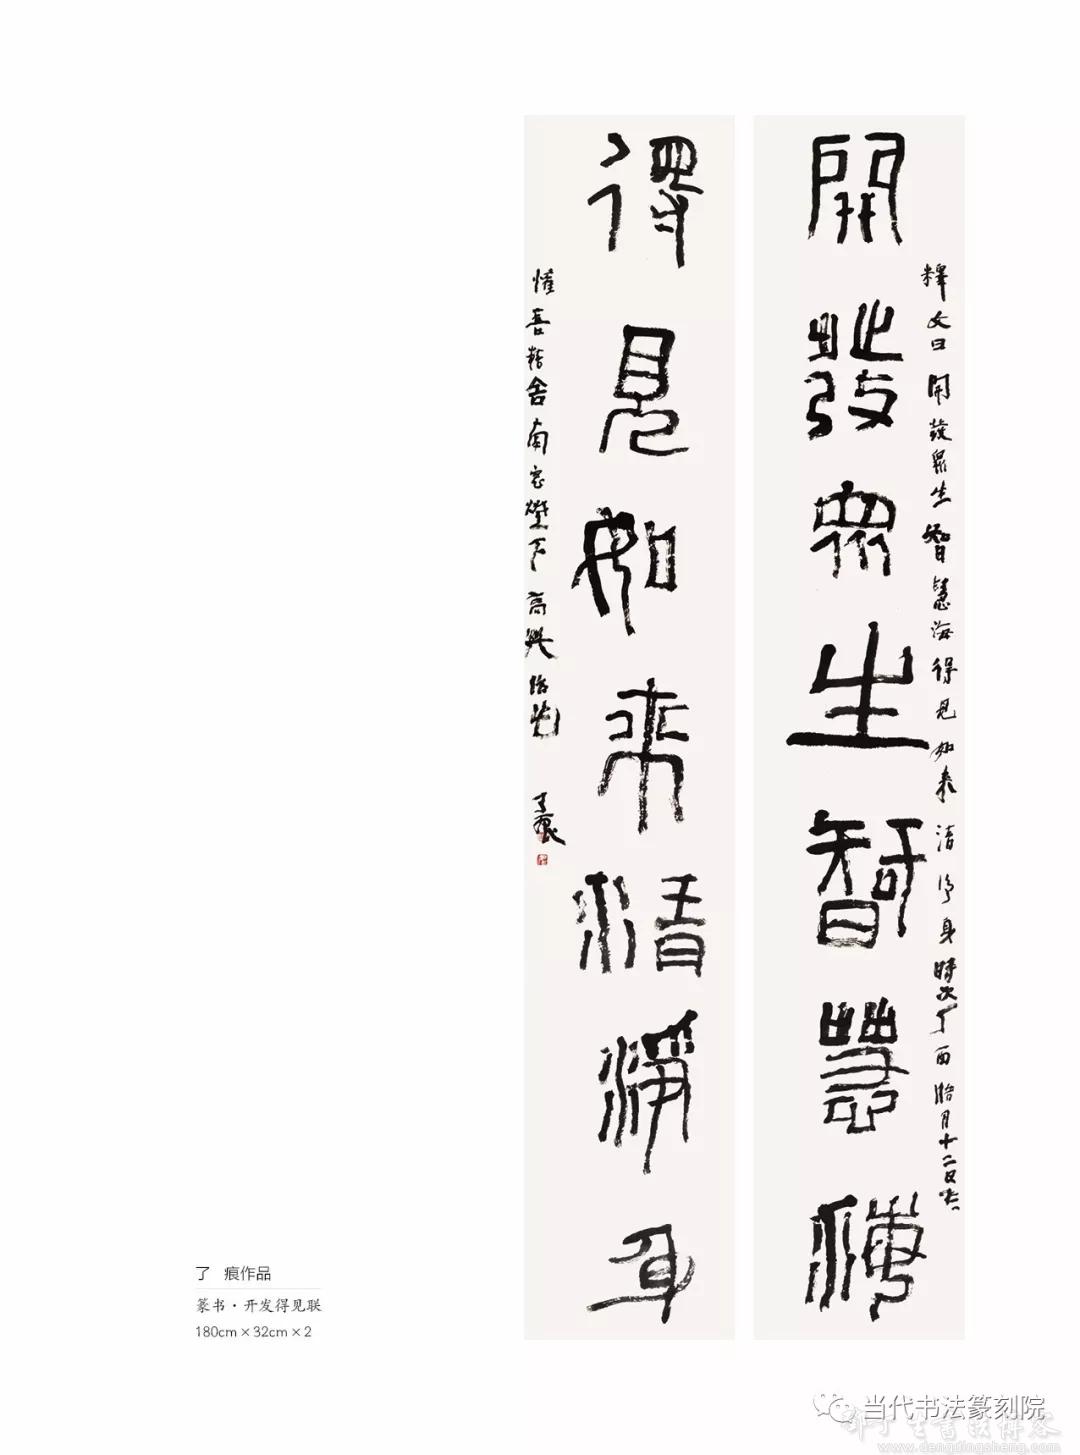 開發眾生智慧海
釋文曰開發眾生智慧海得見如來清淨身時次丁酉臘月十二日
得見如來清淨身
精舍南窗燈下高興
了痕
了　痕作品
篆书·开发得见联
180cm×32cm×2
当代书法篆刻院
www.dengdingsheng.com